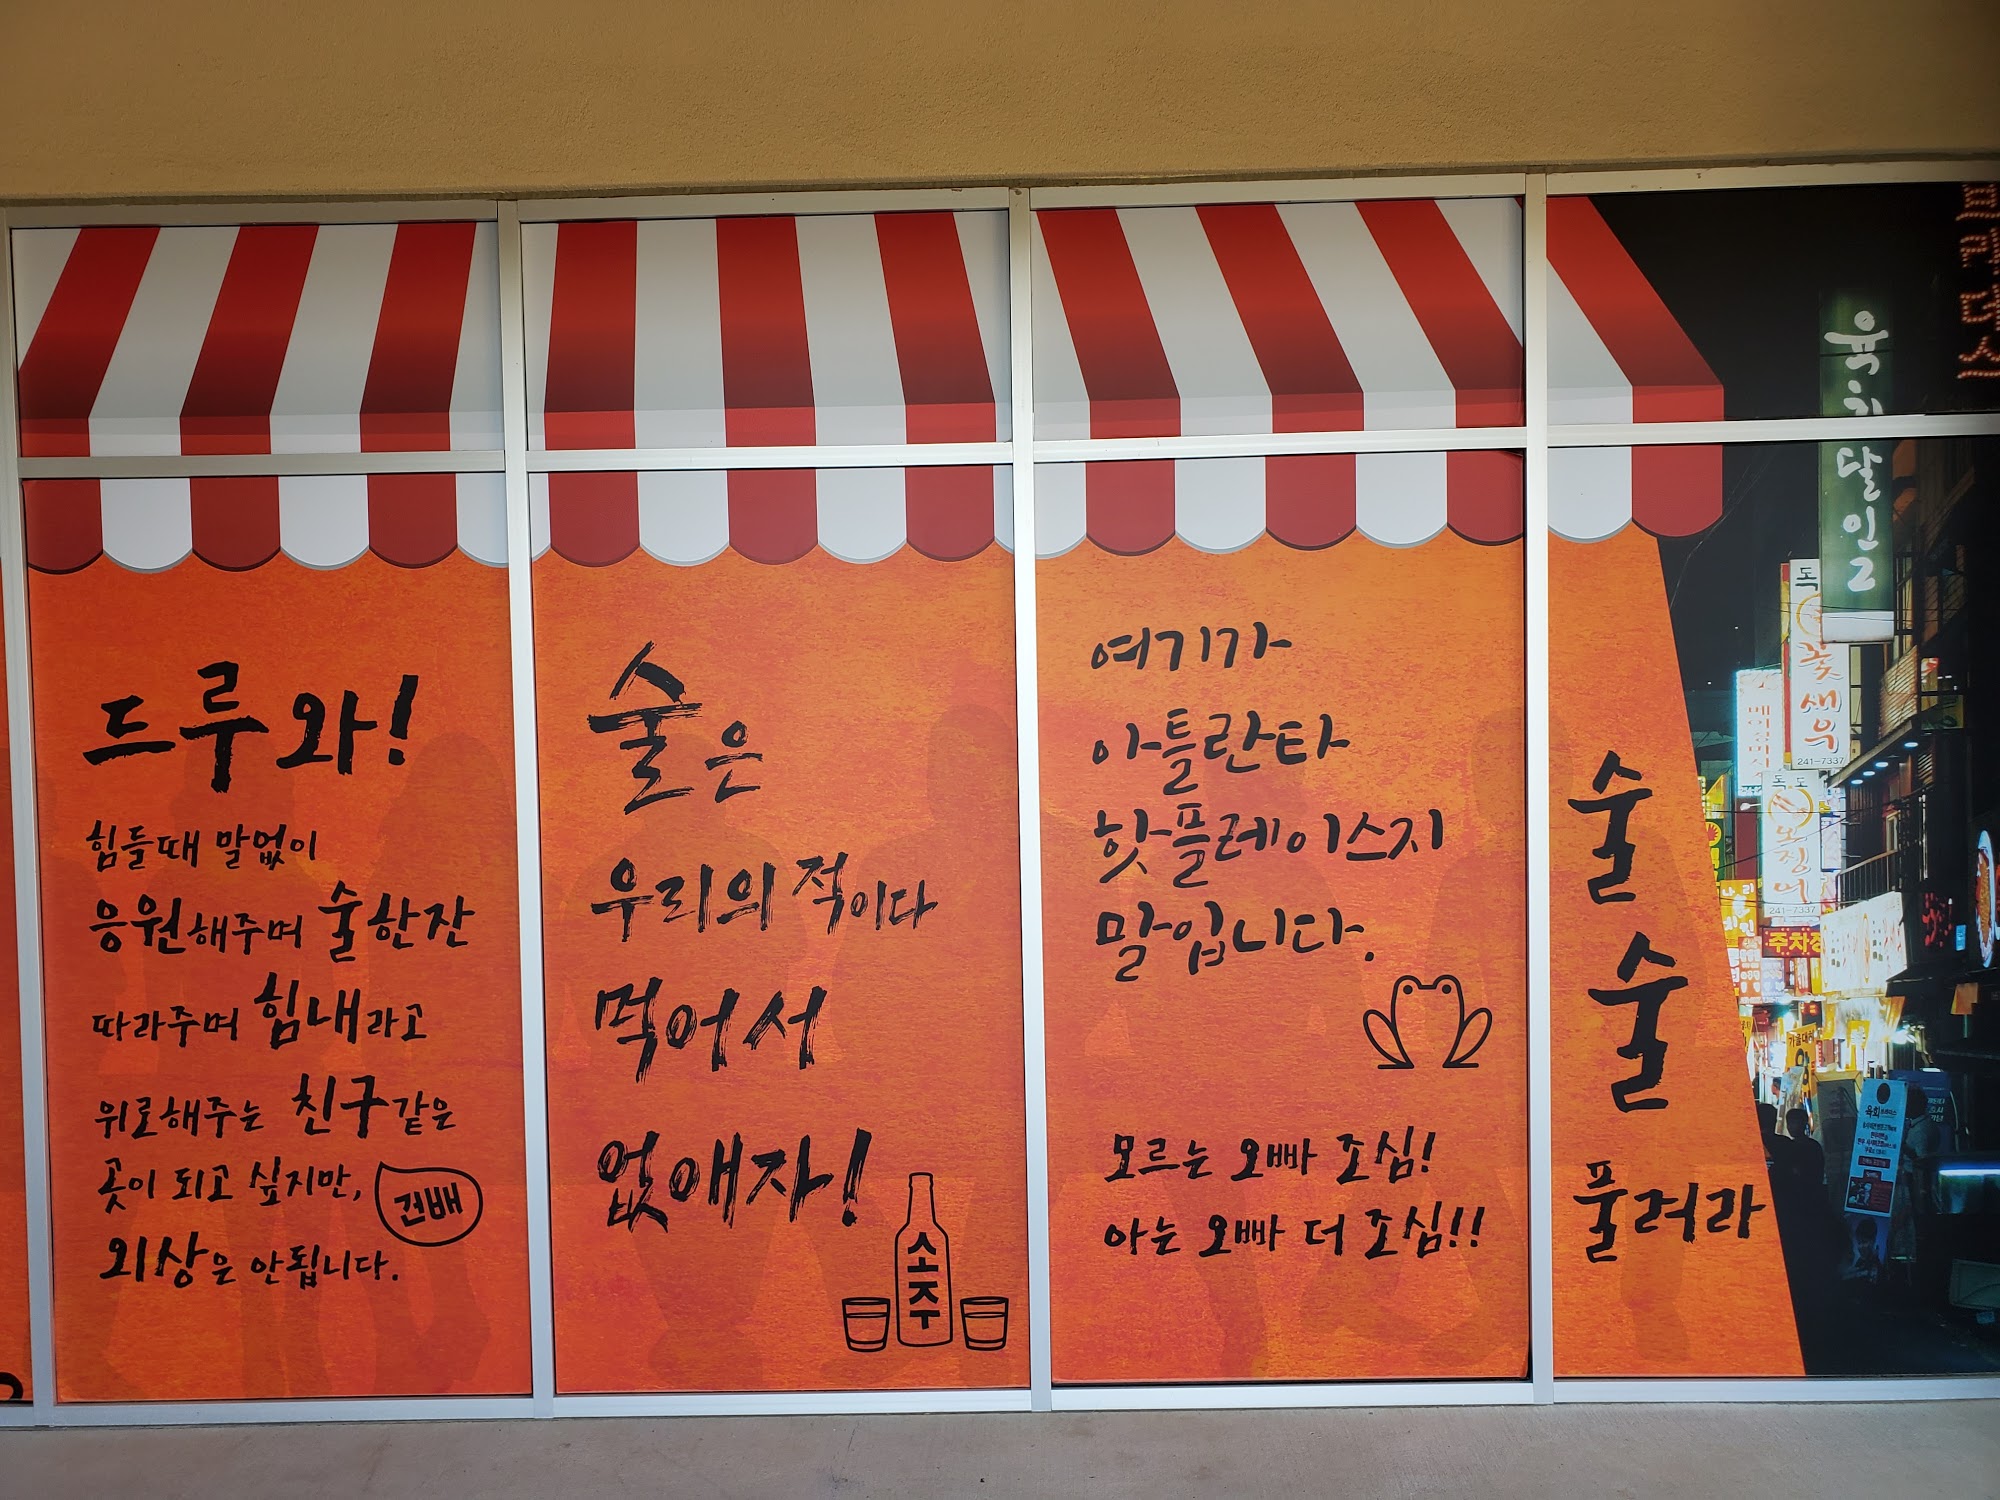 드루와!
힘들때 말없이
응원해주며 술한잔
따라주며 힘내라고
위로해주는 친구같은
곳이 되고 싶지만,
건배
외상은 안됩니다.
술은
우리의 적이다
먹어서
없애자!
소주
여기가
아틀란타
핫플레이스지
말입니다.
모르는 오빠 조심!
아는 오빠 더 조심!!
술
술
풀려라
육회달인
독
꽃새우
241-7337
독도
오징어
241-7337
주차장
육회